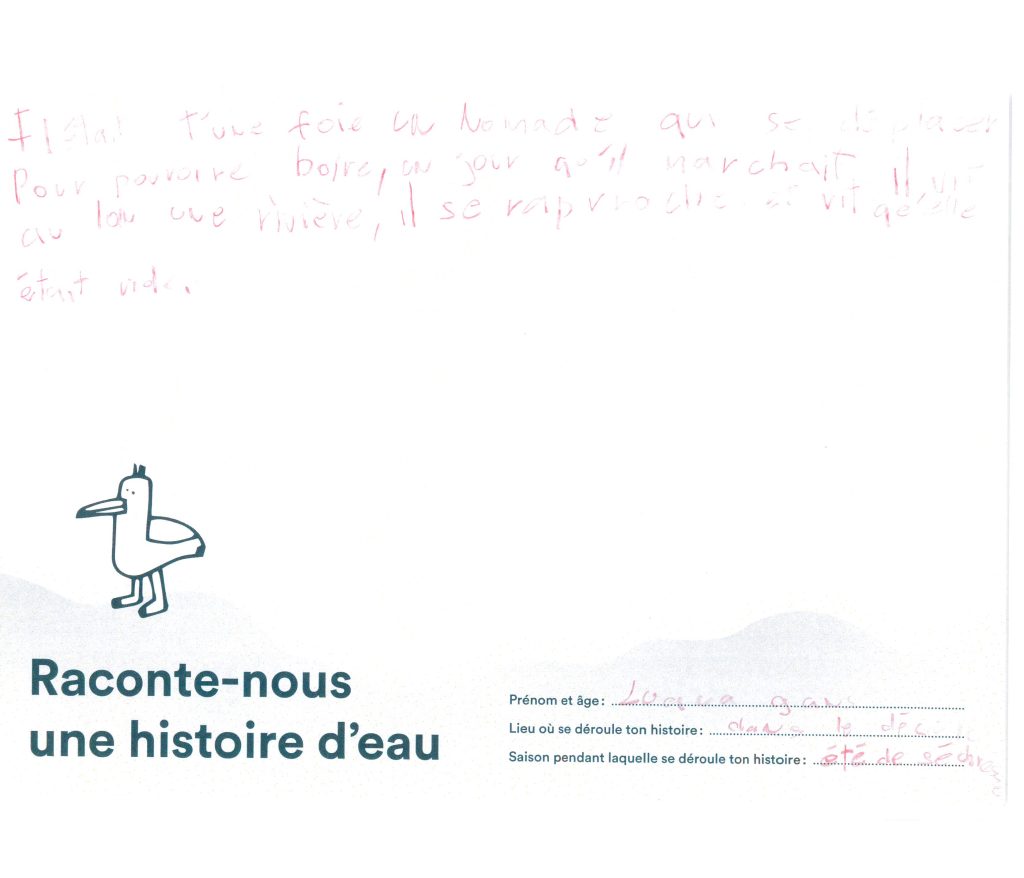 Il était t'une foie un Nomade qui se déplacer
Pour pouvoire boire, un jour qu'il marchait, Il vit
au loin une rivière, il se rapproche et vit qu'elle
était vide.
Raconte-nous
une histoire d'eau
Prénom et âge : 9 ans
Lieu où se déroule ton histoire : dans le
Saison pendant laquelle se déroule ton histoire : été de